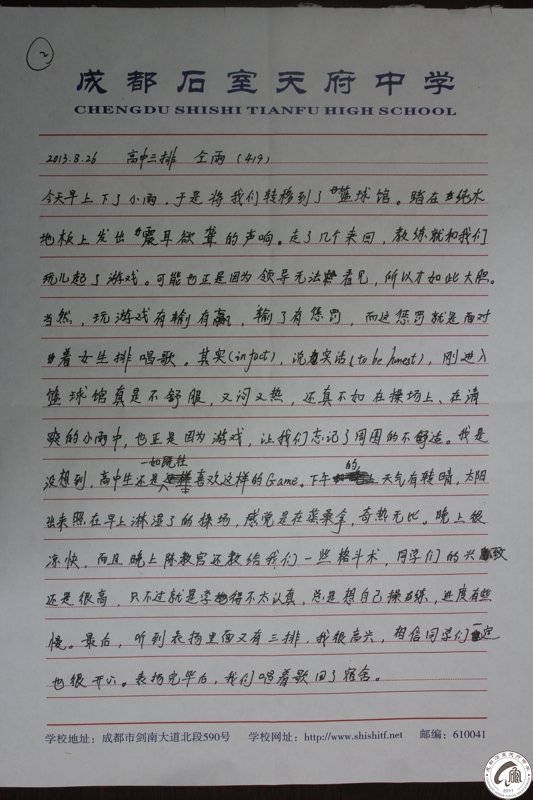 2
成都石室天府中学
CHENGDU SHISHI TIANFU HIGH SCHOOL
2013.8.26 高中三排 全雨 (419)
今天早上下了小雨，于是将我们转移到了篮球馆。踏在纯木
地板上发出震耳欲聋的声响。走了几个来回，教练就和我们
玩儿起了游戏。可能也正是因为领导无法看见，所以才如此大胆。
当然，玩游戏有输有赢，输了有惩罚，而这惩罚就是面对
着女生排唱歌。其实(in fact)，说实话(to be honest)，刚进入
篮球馆真是不舒服，又闷又热，还真不如在操场上、在清
爽的小雨中，也正是因为游戏，让我们忘记了周围的不舒适。我是
没想到，高中生还是一如既往喜欢这样的Game。下午的天气有转晴，太阳
出来照在早上淋湿了的操场，感觉是在蒸桑拿，奇热无比。晚上很
凉快，而且晚上陈教官还教给我们一些格斗术，同学们的兴致
还是很高，只不过就是学得不太认真，总是想自己操练，进度有些
慢。最后，听到表扬里面又有三排，我很高兴，相信同学们一定
也很开心。表扬完毕后，我们唱着歌回了宿舍。
学校地址：成都市剑南大道北段590号 学校网址：http://www.shishitf.net 邮编：610041
2011